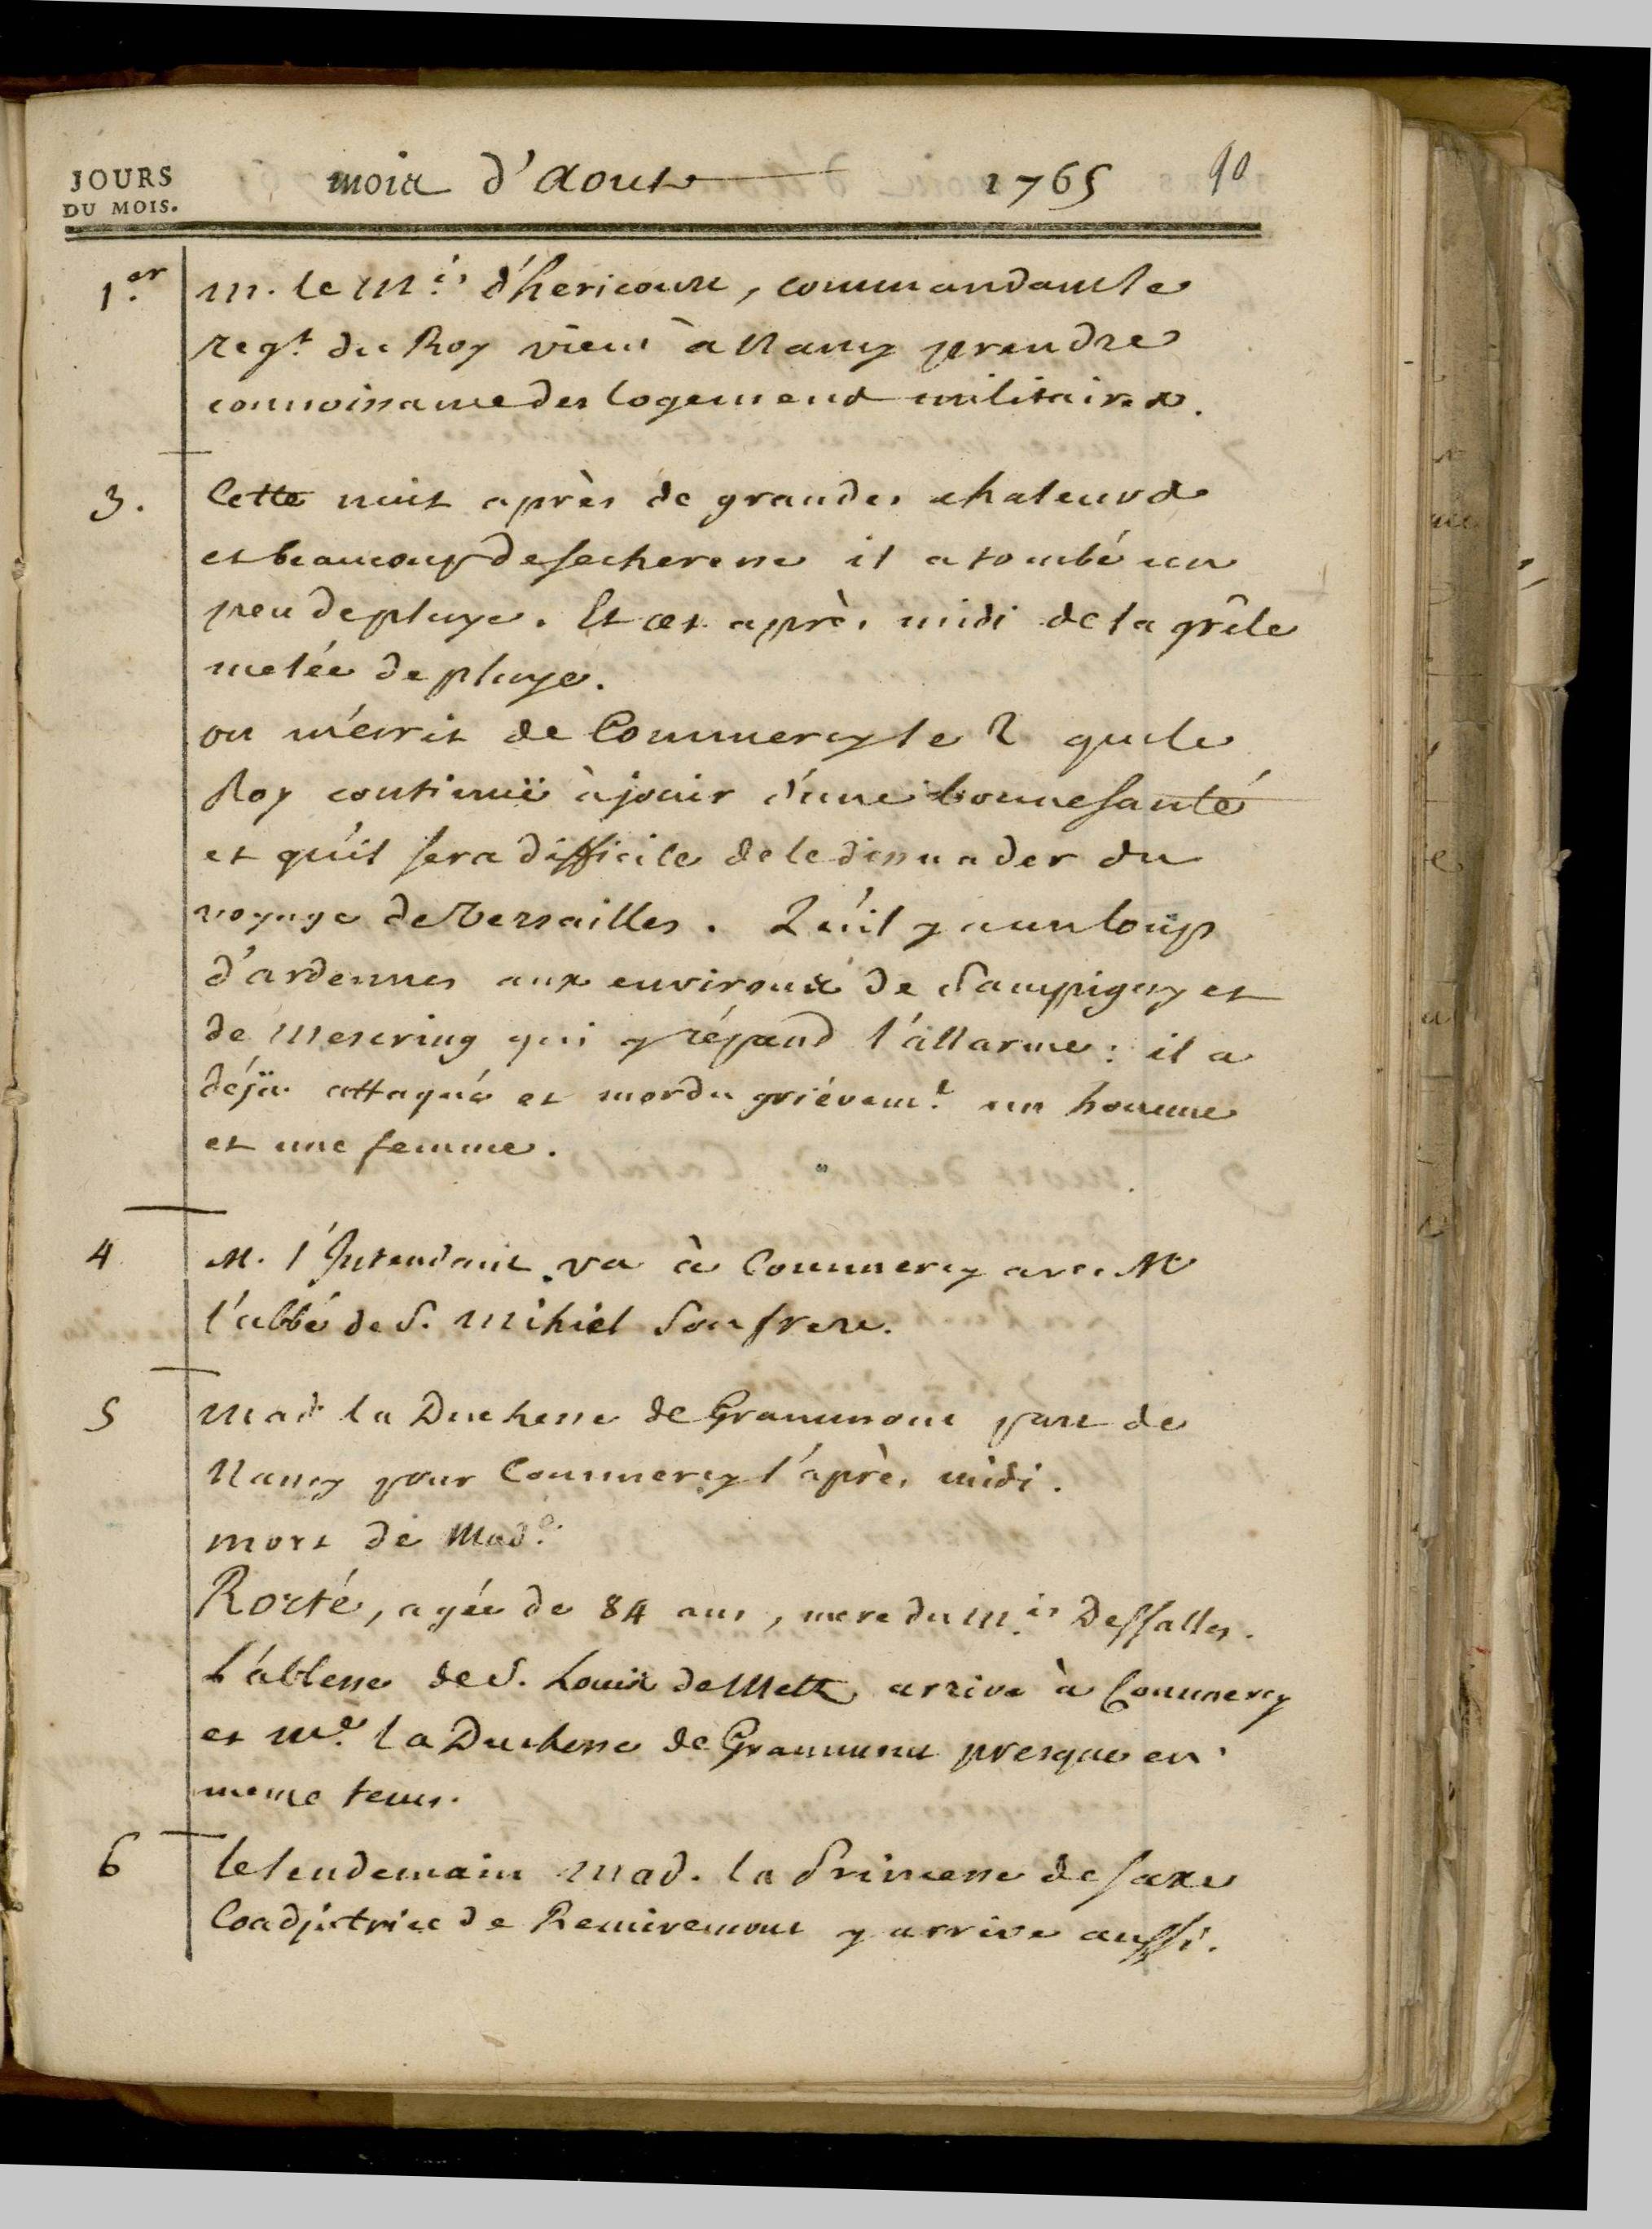 JOURS
DU MOIS.
mois d'Aout 1765 90
1.er M. le M.is d'hericourt, commandant le
reg.t du Roy vient à Nancy prendre
connoissance des logemens militaires.
3. Cette nuit après de grandes chaleurs
et beaucoup de secheresse il a tombé un
peu de pluye. Et cet après midi de la grêle
melée de pluye.
on m'écrit de Commercy le 2 que le
Roy continuë à jouir d'une bonne santé
et qu'il sera difficile de le dissuader du
voyage de Versailles. Qu'il y a un loup
d'ardennes aux environs de Sampigny et
de Mescring qui y répand l'allarme : il a
déja attaqué et mordu griévem.t un homme
et une femme.
4 M. l'Intendant va à Commercy avec M
l'abbé de S. Mihiel son frere.
5 Mad.e la Duchesse de Grammont part de
Nancy pour Commercy l'après midi.
mort de Mad.e
Rorté, agée de 84 ans, mere du M.is Dessalles.
L'abbesse de S. Louis de Metz arrive à Commercy
et M.e la Duchesse de Grammont presque en
meme tems.
6 le lendemain Mad. la Princesse de Saxe
Coadjutrice de Remiremont y arrive aussi.